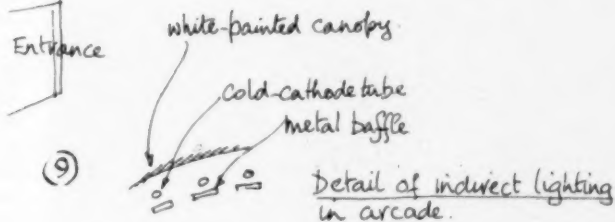 Entrance
white-painted canopy
cold-cathode tube
metal baffle
9
Detail of indirect lighting
in arcade.